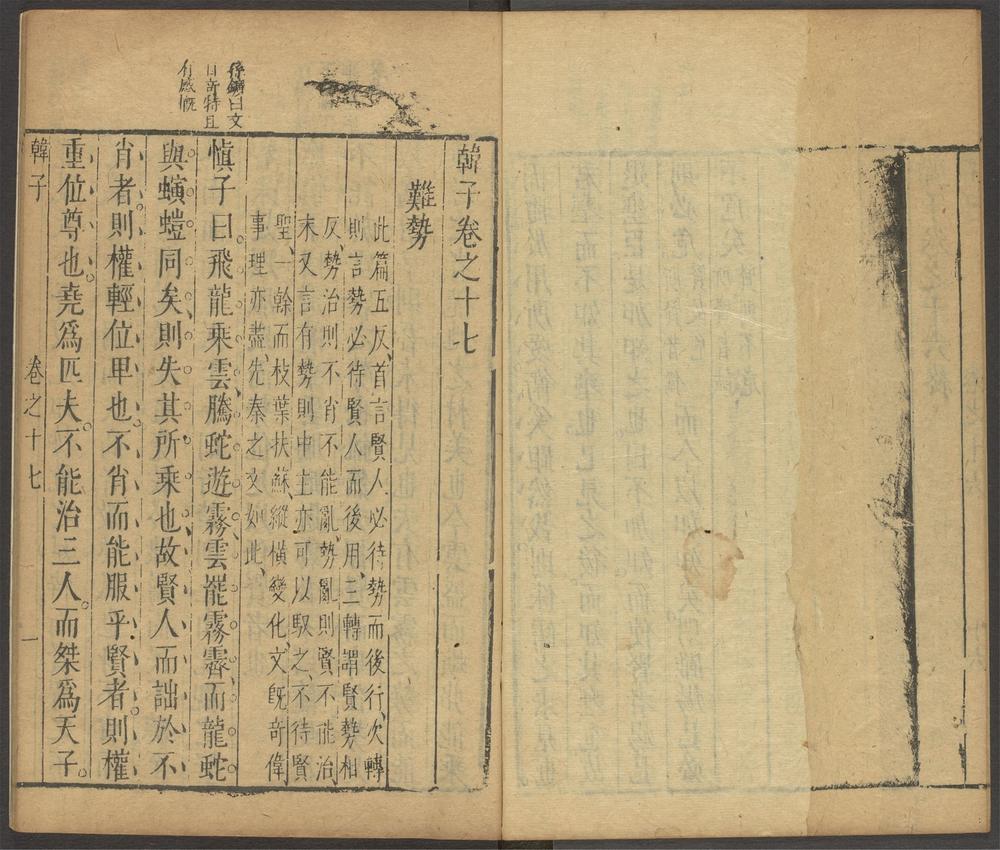 韓子卷之十七
難勢
此篇五反、首言賢人必待勢而後行、次轉
則言勢必待賢人而後用、三轉謂賢勢相
反、勢治則不肖不能亂、勢亂則賢不能治、
末又言有勢則中主亦可以馭之、不待賢
聖、一幹而枝葉扶蘇、縱橫變化、文旣奇偉
事理亦盡、先秦之文如此、
慎子曰。飛龍乘雲。騰蛇遊霧。雲罷霧霽。而龍蛇
與螾螘同矣。則失其所乘也。故賢人而詘於不
肖者。則權輕位卑也。不肖而能服乎賢者。則權
重位尊也。堯爲匹夫。不能治三人。而桀爲天子。
韓子
卷之十七
一
孫鑛曰文
目奇特且
有感慨